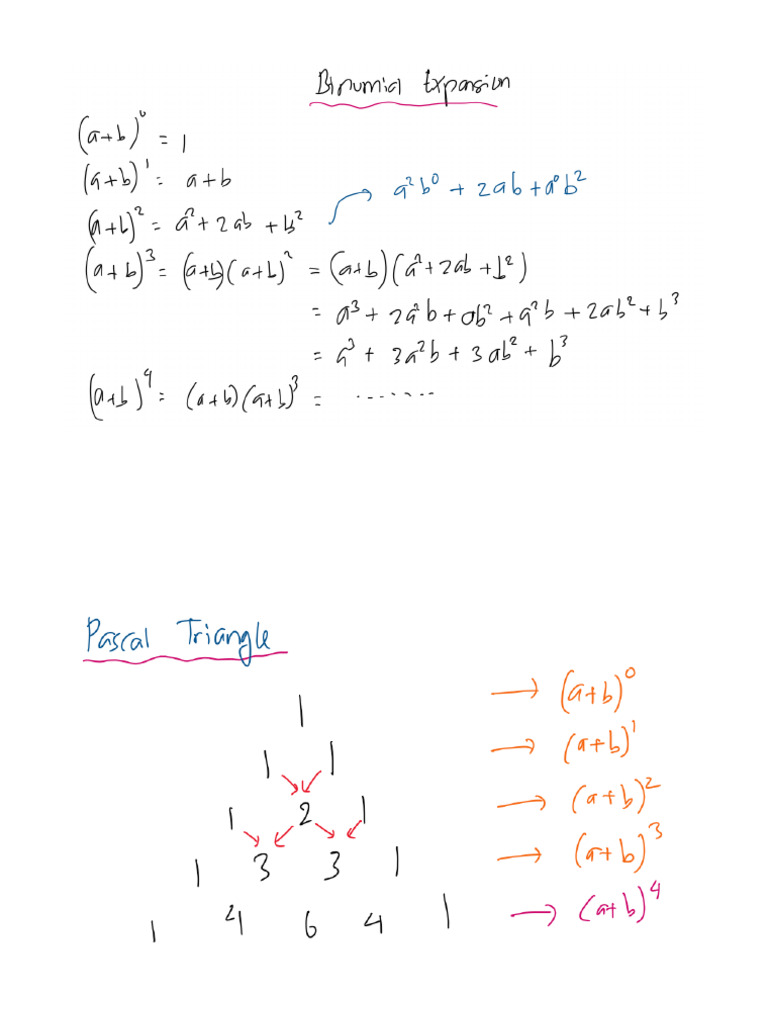 Binomial Expansion
(a+b)⁰ = 1
(a+b)¹ = a+b
(a+b)² = a² + 2ab + b² → a²b⁰ + 2ab + a⁰b²
(a+b)³ = (a+b)(a+b)² = (a+b)(a²+2ab+b²)
= a³ + 2a²b + ab² + a²b + 2ab² + b³
= a³ + 3a²b + 3ab² + b³
(a+b)⁴ = (a+b)(a+b)³ = .......
Pascal Triangle
1 → (a+b)⁰
1 1 → (a+b)¹
1 2 1 → (a+b)²
1 3 3 1 → (a+b)³
1 4 6 4 1 → (a+b)⁴